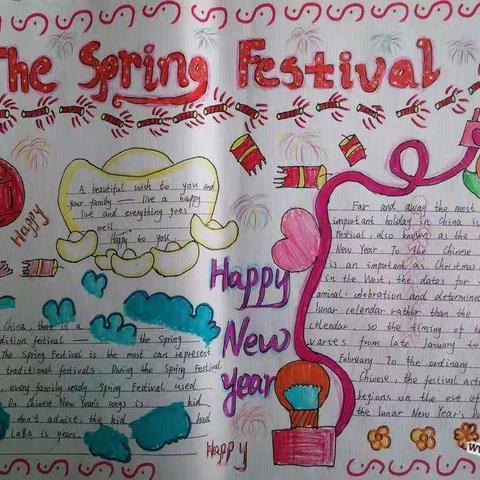 The Spring Festival
A beautiful wish to you and
your family — live a happy
live and everything goes
well.
Happy to you
Happy
Happy
New
Year
China, there is a
dition fstival — the Spring
The Spring Festival is the most can represent
traditional festivals. During the Spring Festival
, every family ready Spring Festival used
On Chinese New Year's songs is: kid
don't admise, the kid had
LaBa is years.
Happy
Far and away the most
important holiday in China is
Festival, also known as the
New Year To the Chinese
is an important as Christmas
in the West, the dates for
annual celebration and determined
lunar celendar rather than the
celendar so the timing of the
varies from late January to
February To the ordinary
Chinese, the festival act
begions on the eve of
the lunar New Year's Da
w